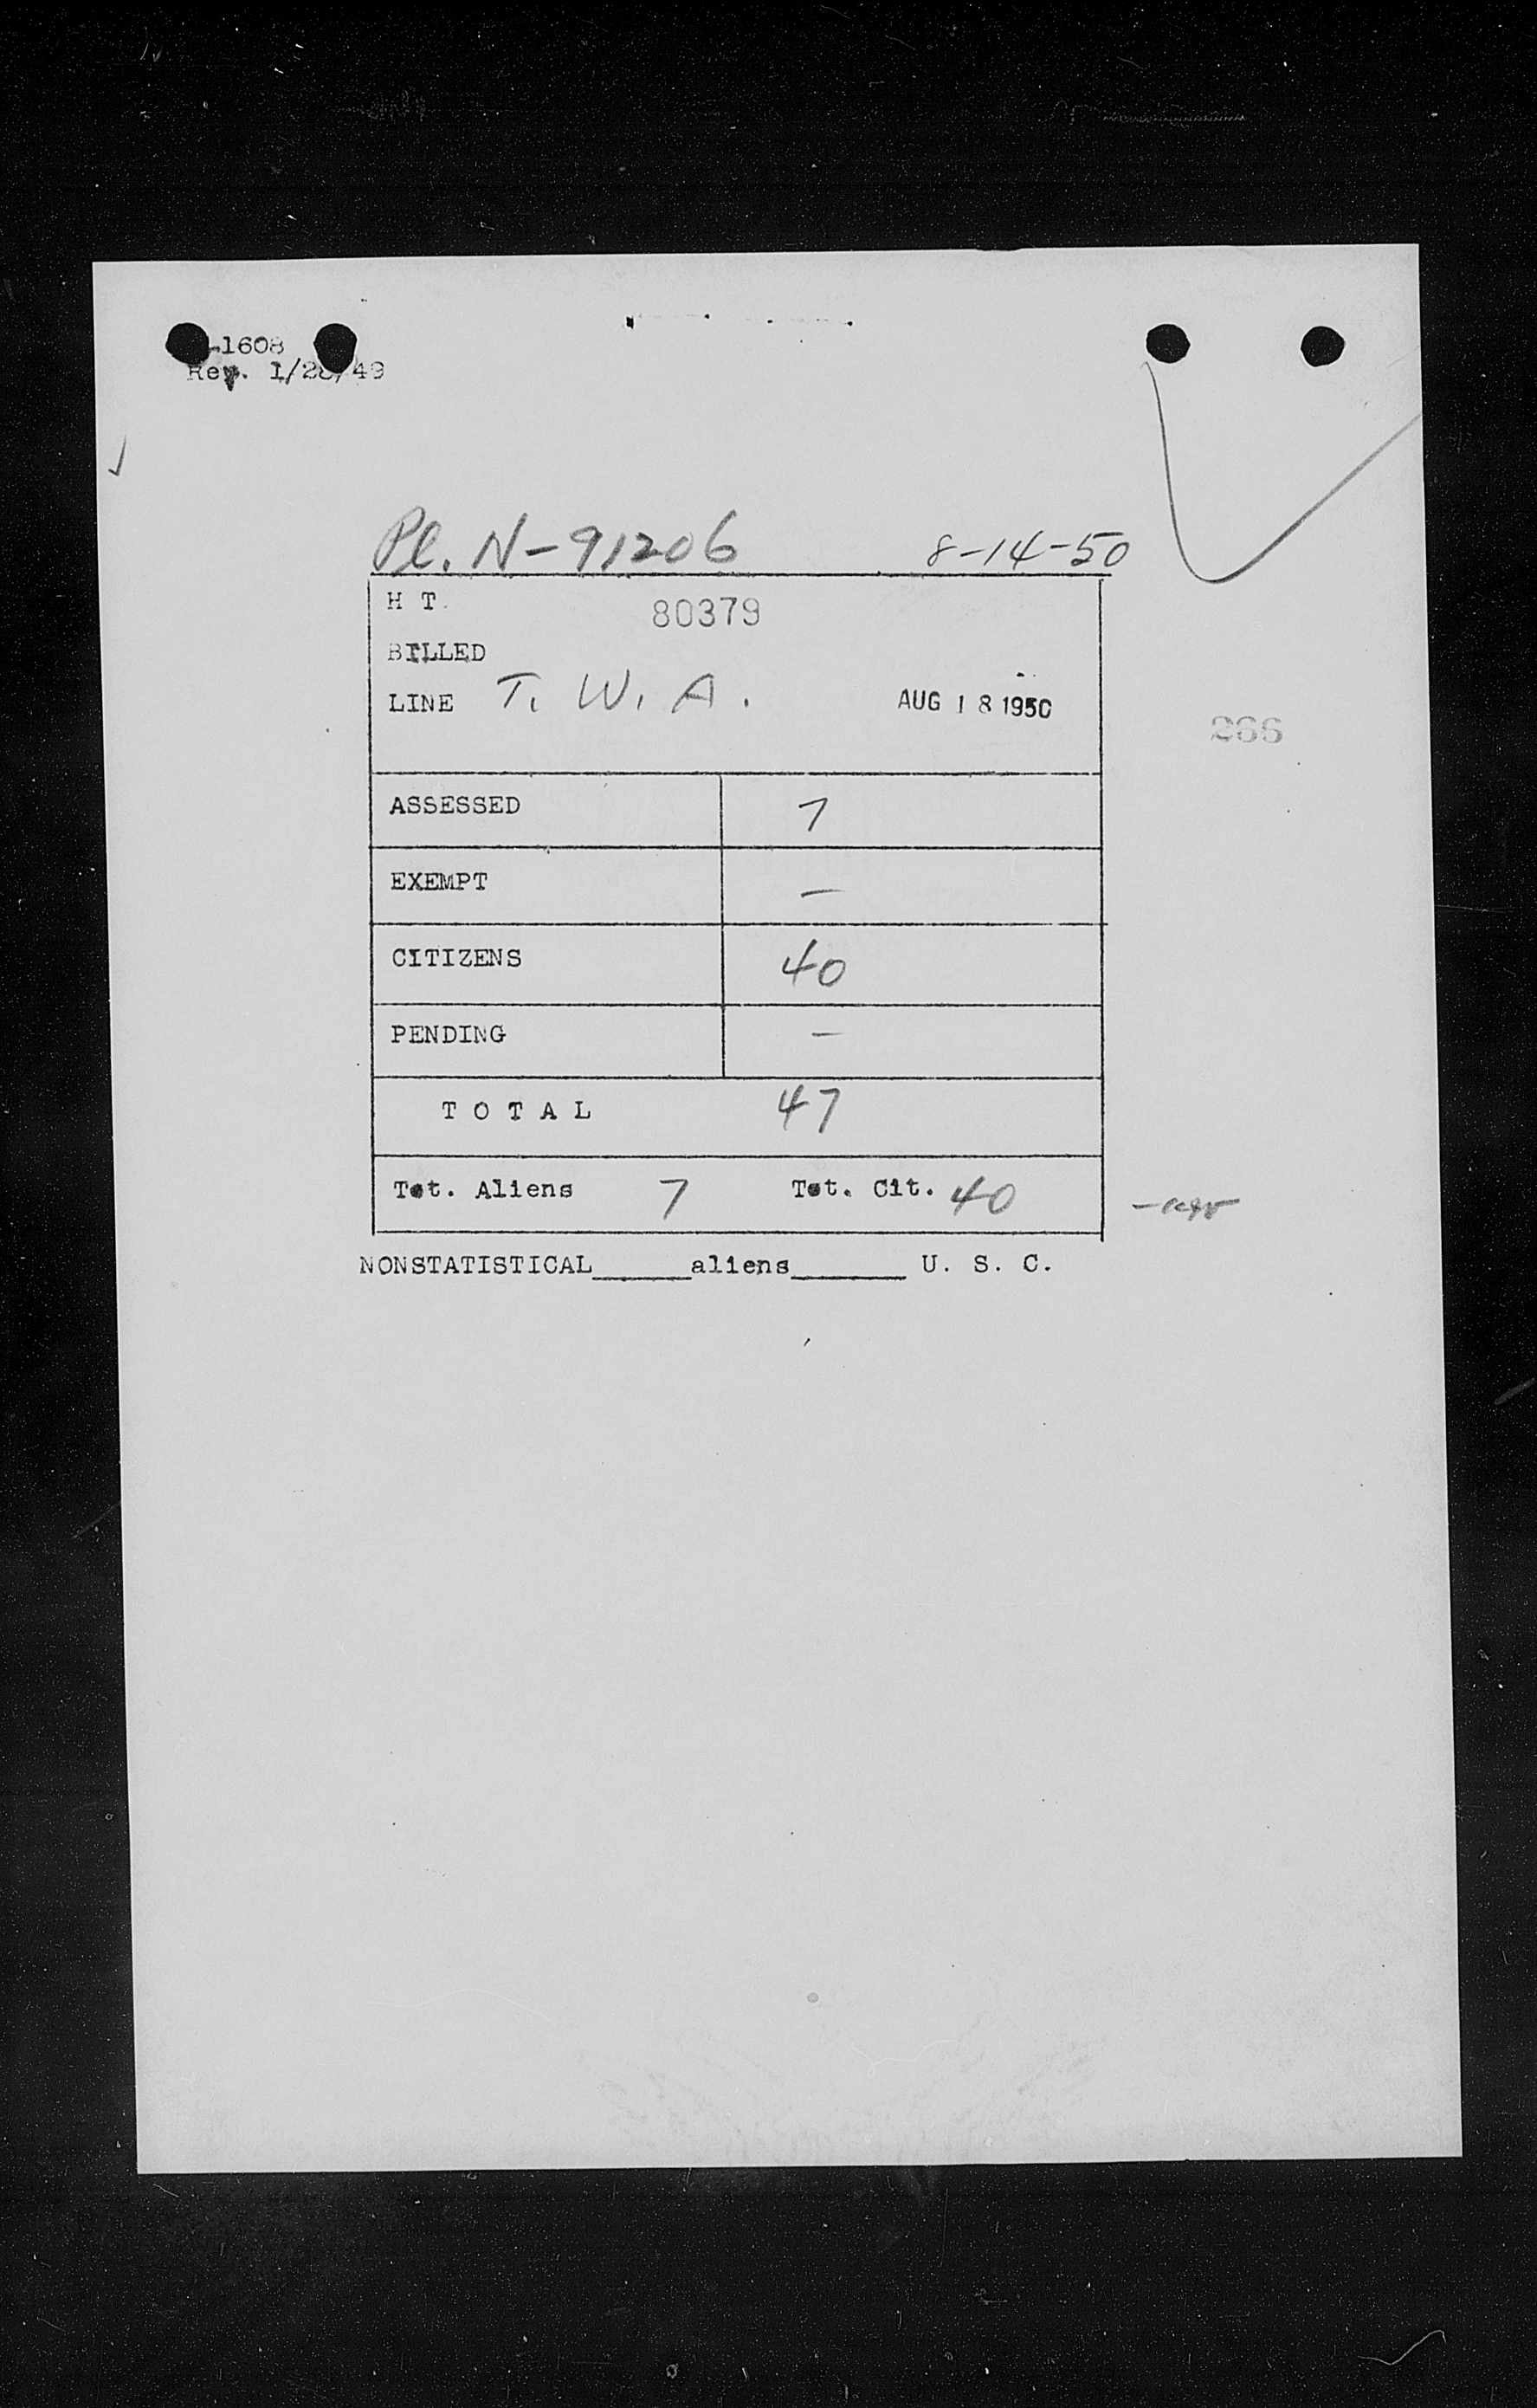 -1608
Rev. 1/28/49
Pl. N-91206 8-14-50
H T. 80379
BILLED
LINE T. W. A. AUG 18 1950
266
ASSESSED 7
EXEMPT —
CITIZENS 40
PENDING —
T O T A L 47
Tot. Aliens 7 Tot. Cit. 40
NONSTATISTICAL______aliens_______ U. S. C.